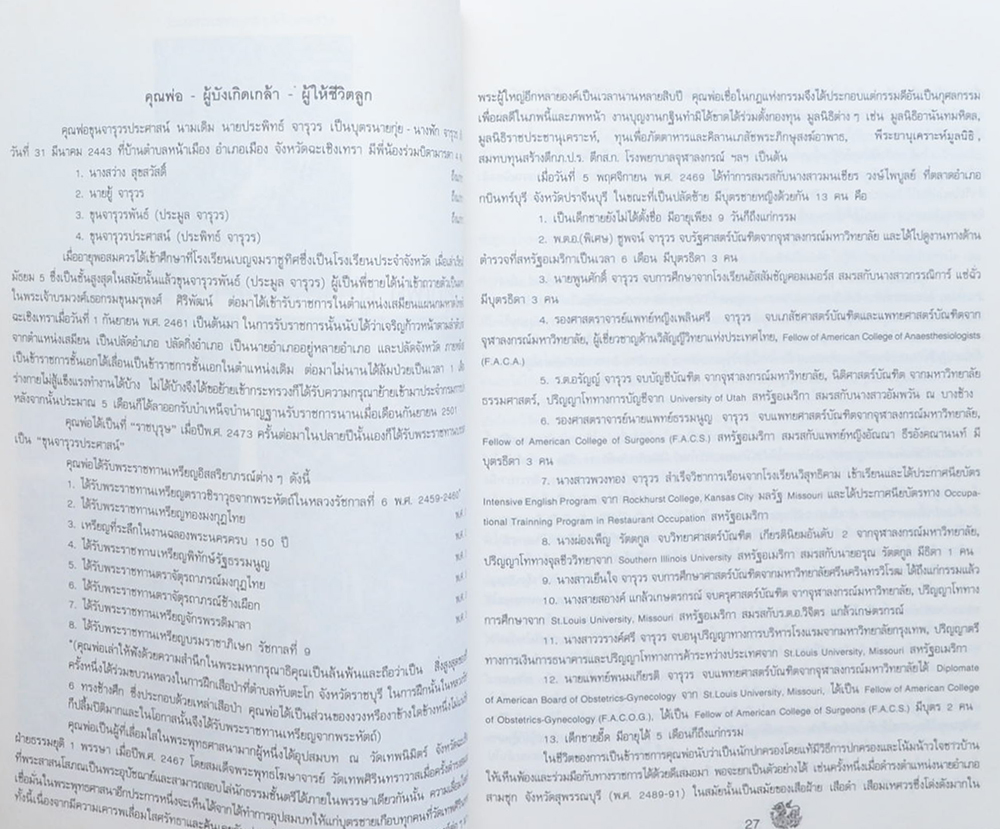 คุณพ่อ - ผู้บังเกิดเกล้า - ผู้ให้ชีวิตลูก
คุณพ่อขุนจารุวรประศาสน์ นามเดิม นายประพิทธ์ จารุวร เป็นบุตรนายกุ่ย - นางพัก จารุวร
วันที่ 31 มีนาคม 2443 ที่บ้านตำบลหน้าเมือง อำเภอเมือง จังหวัดฉะเชิงเทรา มีพี่น้องร่วมบิดามารดา 4
1. นางสว่าง สุขสวัสดิ์
2. นายยู้ จารุวร
3. ขุนจารุวรพันธ์ (ประพูล จารุวร)
4. ขุนจารุวรประศาสน์ (ประพิทธ์ จารุวร)
เมื่ออายุพอสมควรได้เข้าศึกษาที่โรงเรียนเบญจมราชูทิศซึ่งเป็นโรงเรียนประจำจังหวัด
มัธยม 5 ซึ่งเป็นชั้นสูงสุดในสมัยนั้นแล้วขุนจารุวรพันธ์ (ประพูล จารุวร) ผู้เป็นพี่ชายได้นำเข้าถวายตัวเป็น
ในพระเจ้าบรมวงศ์เธอกรมขุนมรุพงศ์ ศิริพัฒน์ ต่อมาได้เข้ารับราชการในตำแหน่งเสมียนแผนก
ฉะเชิงเทราเมื่อวันที่ 1 กันยายน พ.ศ. 2461 เป็นต้นมา ในการรับราชการนั้นนับได้ว่าเจริญก้าวหน้าตามลำดับ
จากตำแหน่งเสมียน เป็นปลัดอำเภอ ปลัดกิ่งอำเภอ เป็นนายอำเภออยู่หลายอำเภอ และปลัดจังหวัด
เป็นข้าราชการชั้นเอกได้เลื่อนเป็นข้าราชการชั้นเอกในตำแหน่งเดิม ต่อมาไม่นานได้ล้มป่วยเป็นเวลา 1
ร่างกายไม่สู้แข็งแรงทำงานได้บ้าง ไม่ได้บ้างจึงได้ขอย้ายเข้ากระทรวงก็ได้รับความกรุณาย้ายเข้ามาประจำกรม
หลังจากนั้นประมาณ 5 เดือนก็ได้ลาออกรับบำเหน็จบำนาญฐานรับราชการนานเมื่อเดือนกันยายน 2501
คุณพ่อได้เป็นที่ "ราชบุรุษ" เมื่อปีพ.ศ. 2473 ครั้นต่อมาในปลายปีนั้นเองก็ได้รับพระราชทาน
เป็น "ขุนจารุวรประศาสน์"
คุณพ่อได้รับพระราชทานเหรียญอิสสริยาภรณ์ต่าง ๆ ดังนี้
1. ได้รับพระราชทานเหรียญตราวชิราวุธจากพระหัตถ์ในหลวงรัชกาลที่ 6 พ.ศ. 2459-2460*
2. ได้รับพระราชทานเหรียญทองมงกุฎไทย
3. เหรียญที่ระลึกในงานฉลองพระนครครบ 150 ปี
4. ได้รับพระราชทานเหรียญพิทักษ์รัฐธรรมนูญ
5. ได้รับพระราชทานตราจัตุรถาภรณ์มงกุฎไทย
6. ได้รับพระราชทานตราจัตุรถาภรณ์ช้างเผือก
7. ได้รับพระราชทานเหรียญจักรพรรดิมาลา
8. ได้รับพระราชทานเหรียญบรมราชาภิเษก รัชกาลที่ 9
*(คุณพ่อเล่าให้ฟังด้วยความสำนึกในพระมหากรุณาธิคุณเป็นล้นพ้นและถือว่าเป็น สิ่งสูงสุด
ครั้งหนึ่งได้ร่วมขบวนหลวงในการฝึกเสือป่าที่ตำบลทับตะโก จังหวัดราชบุรี ในการฝึกนั้นในหลวง
6 ทรงช้างศึก ซึ่งประกอบด้วยเหล่าเสือป่า คุณพ่อได้เป็นส่วนของวงหรือขาช้างใดช้างหนึ่ง
ก็ปลื้มปีติมากและในโอกาสนั้นจึงได้รับพระราชทานเหรียญจากพระหัตถ์)
คุณพ่อเป็นผู้ที่เลื่อมใสในพระพุทธศาสนามากผู้หนึ่งได้อุปสมบท ณ วัดเทพนิมิตร์ จังหวัด
ฝ่ายธรรมยุติ 1 พรรษา เมื่อปีพ.ศ. 2467 โดยสมเด็จพระพุทธโฆษาจารย์ วัดเทพศิรินทราวาสเมื่อครั้งดำรง
ที่พระสาสนโสภณเป็นพระอุปัชฌาย์และสามารถสอบไล่นักธรรมชั้นตรีได้ภายในพรรษาเดียวกันนั้น
เชื่อมั่นในพระพุทธศาสนาอีกประการหนึ่งจะเห็นได้จากได้ทำการอุปสมบทให้แก่บุตรชายเกือบทุกคนที่วัด
ทั้งนี้เนื่องจากมีความเคารพเลื่อมใสศรัทธาและ
พระผู้ใหญ่อีกหลายองค์เป็นเวลานานหลายสิบปี คุณพ่อเชื่อในกฎแห่งกรรมจึงได้ประกอบแต่กรรมดีอันเป็นกุศลกรรม
เพื่อผลดีในภพนี้และภพหน้า งานบุญงานกฐินทำมิได้ขาดได้ร่วมตั้งกองทุน มูลนิธิต่างๆ เช่น มูลนิธิอานันทมหิดล,
มูลนิธิราชประชานุเคราะห์, ทุนเพื่อภัตตาหารและคิลานเภสัชพระภิกษุสงฆ์อาพาธ, พีระยานุเคราะห์มูลนิธิ,
สมทบทุนสร้างตึกภ.ป.ร. ตึกส.ก. โรงพยาบาลจุฬาลงกรณ์ ฯลฯ เป็นต้น
เมื่อวันที่ 5 พฤศจิกายน พ.ศ. 2469 ได้ทำการสมรสกับนางสาวมนเชียร วงษ์ไพบูลย์ ที่ตลาดอำเภอ
กบินทร์บุรี จังหวัดปราจีนบุรี ในขณะที่เป็นปลัดซ้าย มีบุตรชายหญิงด้วยกัน 13 คน คือ
1. เป็นเด็กชายยังไม่ได้ตั้งชื่อ มีอายุเพียง 9 วันก็ถึงแก่กรรม
2. พ.ต.อ.(พิเศษ) ชูพจน์ จารุวร จบรัฐศาสตร์บัณฑิตจากจุฬาลงกรณ์มหาวิทยาลัย และได้ไปดูงานทางด้าน
ตำรวจที่สหรัฐอเมริกาเป็นเวลา 6 เดือน มีบุตรธิดา 3 คน
3. นายพูนศักดิ์ จารุวร จบการศึกษาจากโรงเรียนอัสสัมชัญคอมเมอร์ส สมรสกับนางสาวกรรณิการ์ แซ่ฉั่ว
มีบุตรธิดา 3 คน
4. รองศาสตราจารย์แพทย์หญิงเพลินศรี จารุวร จบเภสัชศาสตร์บัณฑิตและแพทยศาสตร์บัณฑิตจาก
จุฬาลงกรณ์มหาวิทยาลัย, ผู้เชี่ยวชาญด้านวิสัญญีวิทยาแห่งประเทศไทย, Fellow of American College of Anaesthesiologists
(F.A.C.A.)
5. ร.ต.อรัญญ์ จารุวร จบบัญชีบัณฑิต จากจุฬาลงกรณ์มหาวิทยาลัย, นิติศาสตร์บัณฑิต จากมหาวิทยาลัย
ธรรมศาสตร์, ปริญญาโททางการบัญชีจาก University of Utah สหรัฐอเมริกา สมรสกับนางสาวอัมพวัน ณ บางช้าง
6. รองศาสตราจารย์นายแพทย์ธรรมนูญ จารุวร จบแพทยศาสตร์บัณฑิตจากจุฬาลงกรณ์มหาวิทยาลัย,
Fellow of American College of Surgeons (F.A.C.S.) สหรัฐอเมริกา สมรสกับแพทย์หญิงอัณณา ธีรอังคณานนท์ มี
บุตรธิดา 3 คน
7. นางสาวพวงทอง จารุวร สำเร็จวิชาการเรือนจากโรงเรียนวิสุทธิคาม เข้าเรียนและได้ประกาศนียบัตร
Intensive English Program จาก Rockhurst College, Kansas City มลรัฐ Missouri และได้ประกาศนียบัตรทาง Occupa-
tional Trainning Program in Restaurant Occupation สหรัฐอเมริกา
8. นางผ่องเพ็ญ รัตตกูล จบวิทยาศาสตร์บัณฑิต เกียรตินิยมอันดับ 2 จากจุฬาลงกรณ์มหาวิทยาลัย,
ปริญญาโททางจุลชีววิทยาจาก Southern Illinois University สหรัฐอเมริกา สมรสกับนายอรุณ รัตตกูล มีธิดา 1 คน
9. นางสาวเย็นใจ จารุวร จบการศึกษาศาสตร์บัณฑิตจากมหาวิทยาลัยศรีนครินทรวิโรฒ ได้ถึงแก่กรรมแล้ว
10. นางสายสอางค์ แกล้วเกษตรกรณ์ จบครุศาสตร์บัณฑิต จากจุฬาลงกรณ์มหาวิทยาลัย, ปริญญาโททาง
การศึกษาจาก St.Louis University, Missouri สหรัฐอเมริกา สมรสกับร.ต.อ.วิจิตร แกล้วเกษตรกรณ์
11. นางสาววรางค์ศรี จารุวร จบอนุปริญญาทางการบริหารโรงแรมจากมหาวิทยาลัยกรุงเทพ, ปริญญาตรี
ทางการเงินการธนาคารและปริญญาโททางการค้าระหว่างประเทศจาก St.Louis University, Missouri สหรัฐอเมริกา
12. นายแพทย์พนมเกียรติ จารุวร จบแพทยศาสตร์บัณฑิตจากจุฬาลงกรณ์มหาวิทยาลัยได้ Diplomate
of American Board of Obstetrics-Gynecology จาก St.Louis University, Missouri, ได้เป็น Fellow of American College
of Obstetrics-Gynecology (F.A.C.O.G.), ได้เป็น Fellow of American College of Surgeons (F.A.C.S.) มีบุตร 2 คน
13. เด็กชายอี๊ด มีอายุได้ 5 เดือนก็ถึงแก่กรรม
ในชีวิตของการเป็นข้าราชการคุณพ่อนับว่าเป็นนักปกครองโดยแท้มีวิธีการปกครองและโน้มน้าวใจชาวบ้าน
ให้เห็นพ้องและร่วมมือกับทางราชการได้ด้วยดีเสมอมา พอจะยกเป็นตัวอย่างได้ เช่นครั้งหนึ่งเมื่อดำรงตำแหน่งนายอำเภอ
สามชุก จังหวัดสุพรรณบุรี (พ.ศ. 2489-91) ในสมัยนั้นเป็นสมัยของเสือฝ้าย เสือดำ เสือมเหศวรซึ่งโด่งดังมากใน
27